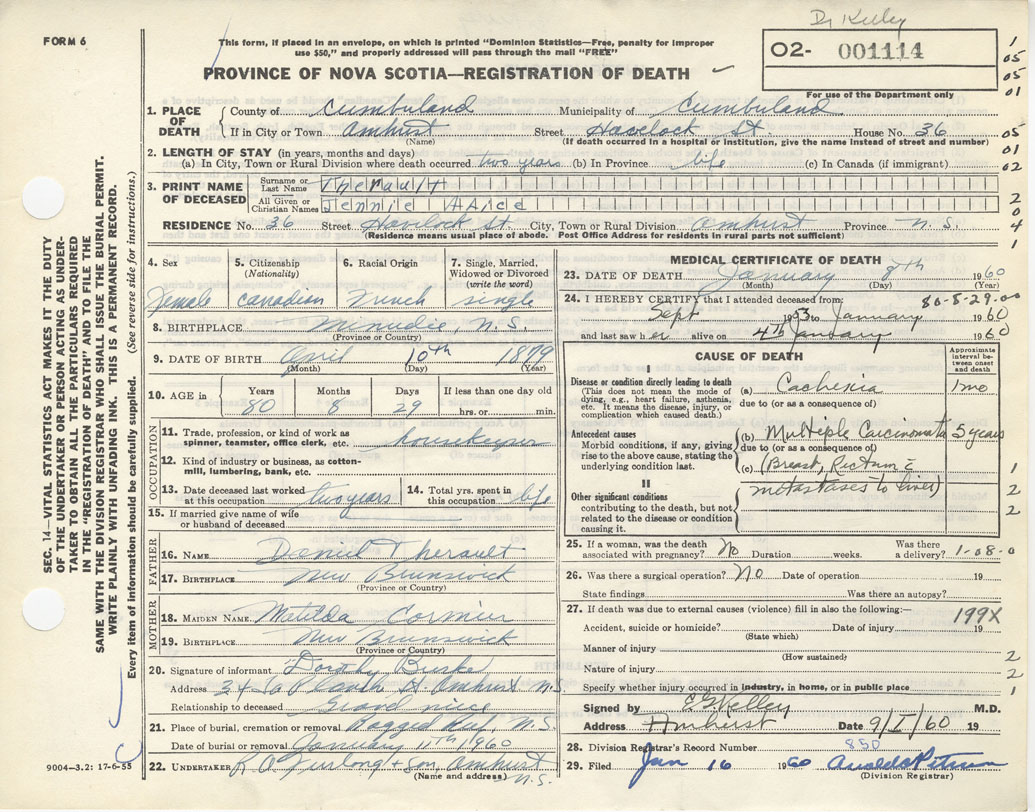 Dr Kelley
FORM 6
This form, if placed in an envelope, on which is printed "Dominion Statistics—Free, penalty for improper
use $50," and properly addressed will pass through the mail "FREE"
O2- 001114
For use of the Department only
PROVINCE OF NOVA SCOTIA—REGISTRATION OF DEATH
1
05
05
01
05
01
02
2
0
4
1
1. PLACE OF DEATH
County of Cumberland Municipality of Cumberland
If in City or Town Amherst Street Havelock St. House No. 36
(Name) (If death occurred in a hospital or institution, give the name instead of street and number)
2. LENGTH OF STAY (in years, months and days)
(a) In City, Town or Rural Division where death occurred two years (b) In Province life (c) In Canada (if immigrant)
3. PRINT NAME OF DECEASED
Surname or Last Name Theriault
All Given or Christian Names Jennie Alice
RESIDENCE No. 36 Street Havelock St. City, Town or Rural Division Amherst Province N.S.
(Residence means usual place of abode. Post Office Address for residents in rural parts not sufficient)
SEC. 14—VITAL STATISTICS ACT MAKES IT THE DUTY
OF THE UNDERTAKER OR PERSON ACTING AS UNDER-
TAKER TO OBTAIN ALL THE PARTICULARS REQUIRED
IN THE "REGISTRATION OF DEATH" AND TO FILE THE
SAME WITH THE DIVISION REGISTRAR WHO SHALL ISSUE THE BURIAL PERMIT.
WRITE PLAINLY WITH UNFADING INK. THIS IS A PERMANENT RECORD.
Every item of information should be carefully supplied. (See reverse side for instructions.)
4. Sex 5. Citizenship (Nationality) 6. Racial Origin 7. Single, Married, Widowed or Divorced (write the word)
female canadian French single
8. BIRTHPLACE Minudie, N.S.
(Province or Country)
9. DATE OF BIRTH April 10th 1879
(Month) (Day) (Year)
10. AGE in Years Months Days If less than one day old
80 8 29 hrs. or min.
OCCUPATION
11. Trade, profession, or kind of work as spinner, teamster, office clerk, etc. housekeeper
12. Kind of industry or business, as cotton-mill, lumbering, bank, etc.
13. Date deceased last worked at this occupation two years 14. Total yrs. spent in this occupation life
15. If married give name of wife or husband of deceased
FATHER
16. NAME Daniel Therault
17. BIRTHPLACE New Brunswick
(Province or Country)
MOTHER
18. MAIDEN NAME Matilda Cormier
19. BIRTHPLACE New Brunswick
(Province or Country)
20. Signature of informant Dorothy Burke
Address 34 La Planche St Amherst N.S.
Relationship to deceased Grand niece
21. Place of burial, cremation or removal Ragged Reef, N.S.
Date of burial or removal January 11th/1960
22. UNDERTAKER R. A. Furlong + Son, Amherst N.S.
(Name and address)
9004-3.2: 17-6-55
MEDICAL CERTIFICATE OF DEATH
23. DATE OF DEATH January 8th 1960
(Month) (Day) (Year)
80-8-29-00
24. I HEREBY CERTIFY that I attended deceased from:
Sept 1953 to January 1960
and last saw her alive on 4th January 1960
CAUSE OF DEATH
Approximate interval between onset and death
I
Disease or condition directly leading to death
(This does not mean the mode of dying, e.g., heart failure, asthenia, etc. It means the disease, injury, or complication which caused death.)
(a) Cachexia 1 mo
due to (or as a consequence of)
Antecedent causes
Morbid conditions, if any, giving rise to the above cause, stating the underlying condition last.
(b) Multiple Carcinomata 5 years
due to (or as a consequence of)
(c) (Breast, Rectum c̄
metastases to liver)
II
Other significant conditions
contributing to the death, but not related to the disease or condition causing it.
1
2
2
25. If a woman, was the death associated with pregnancy? No Duration weeks. Was there a delivery? 1-08-0
26. Was there a surgical operation? No Date of operation 19
State findings Was there an autopsy?
27. If death was due to external causes (violence) fill in also the following:—
199X
Accident, suicide or homicide? Date of injury 19
(State which)
Manner of injury
(How sustained)
Nature of injury
Specify whether injury occurred in industry, in home, or in public place
2
2
1
Signed by E G Kelley M.D.
Address Amherst Date 9/I/60 19
28. Division Registrar's Record Number 850
29. Filed Jan 16 1960
(Division Registrar)